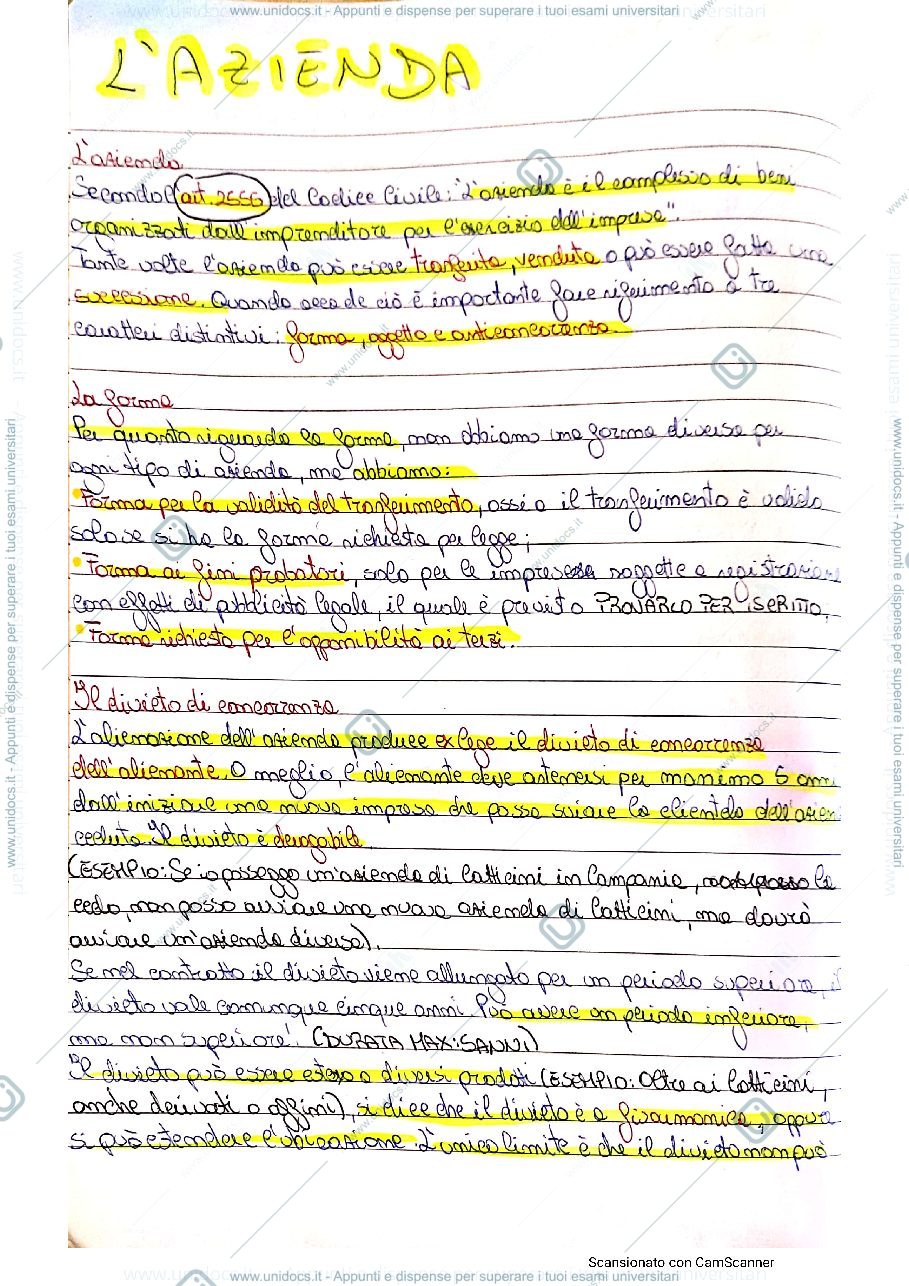 www.unidocs.it - Appunti e dispense per superare i tuoi esami universitari
L'AZIENDA
L'azienda
Secondo l'art. 2555 del Codice Civile: "L'azienda è il complesso di beni
organizzati dall'imprenditore per l'esercizio dell'impresa".
Tante volte l'azienda può essere trasferita, venduta o può essere fatta una
successione. Quando accade ciò è importante fare riferimento a tre
caratteri distintivi: forma, oggetto e anticoncorrenza.
La forma
Per quanto riguarda la forma, non abbiamo una forma diversa per
ogni tipo di azienda, ma abbiamo:
• Forma per la validità del trasferimento, ossia il trasferimento è valido
solo se si ha la forma richiesta per legge;
• Forma ai fini probatori, solo per le imprese soggette a registrazione
con effetti di pubblicità legale, il quale è previsto PROVARLO PER ISCRITTO.
• Forma richiesta per l'opponibilità ai terzi.
Il divieto di concorrenza
L'alienazione dell'azienda produce ex lege il divieto di concorrenza
dell'alienante. O meglio, l'alienante deve astenersi per massimo 5 anni
dall'iniziare una nuova impresa che possa sviare la clientela dell'azien
ceduta. Il divieto è derogabile
(ESEMPIO: Se io posseggo un'azienda di latticini in Campania, la
cedo, non posso avviare una nuova azienda di latticini, ma dovrò
avviare un'azienda diversa).
Se nel contratto il divieto viene allungato per un periodo superiore, il
divieto vale comunque cinque anni. Può avere un periodo inferiore,
ma non superiore! (DURATA MAX: 5ANNI)
Il divieto può essere esteso a diversi prodotti (ESEMPIO: Oltre ai latticini,
anche derivati o affini), si dice che il divieto è a fisarmonica, oppure
si può estendere l'ubicazione. L'unico limite è che il divieto non può
Scansionato con CamScanner
www.unidocs.it - Appunti e dispense per superare i tuoi esami universitari